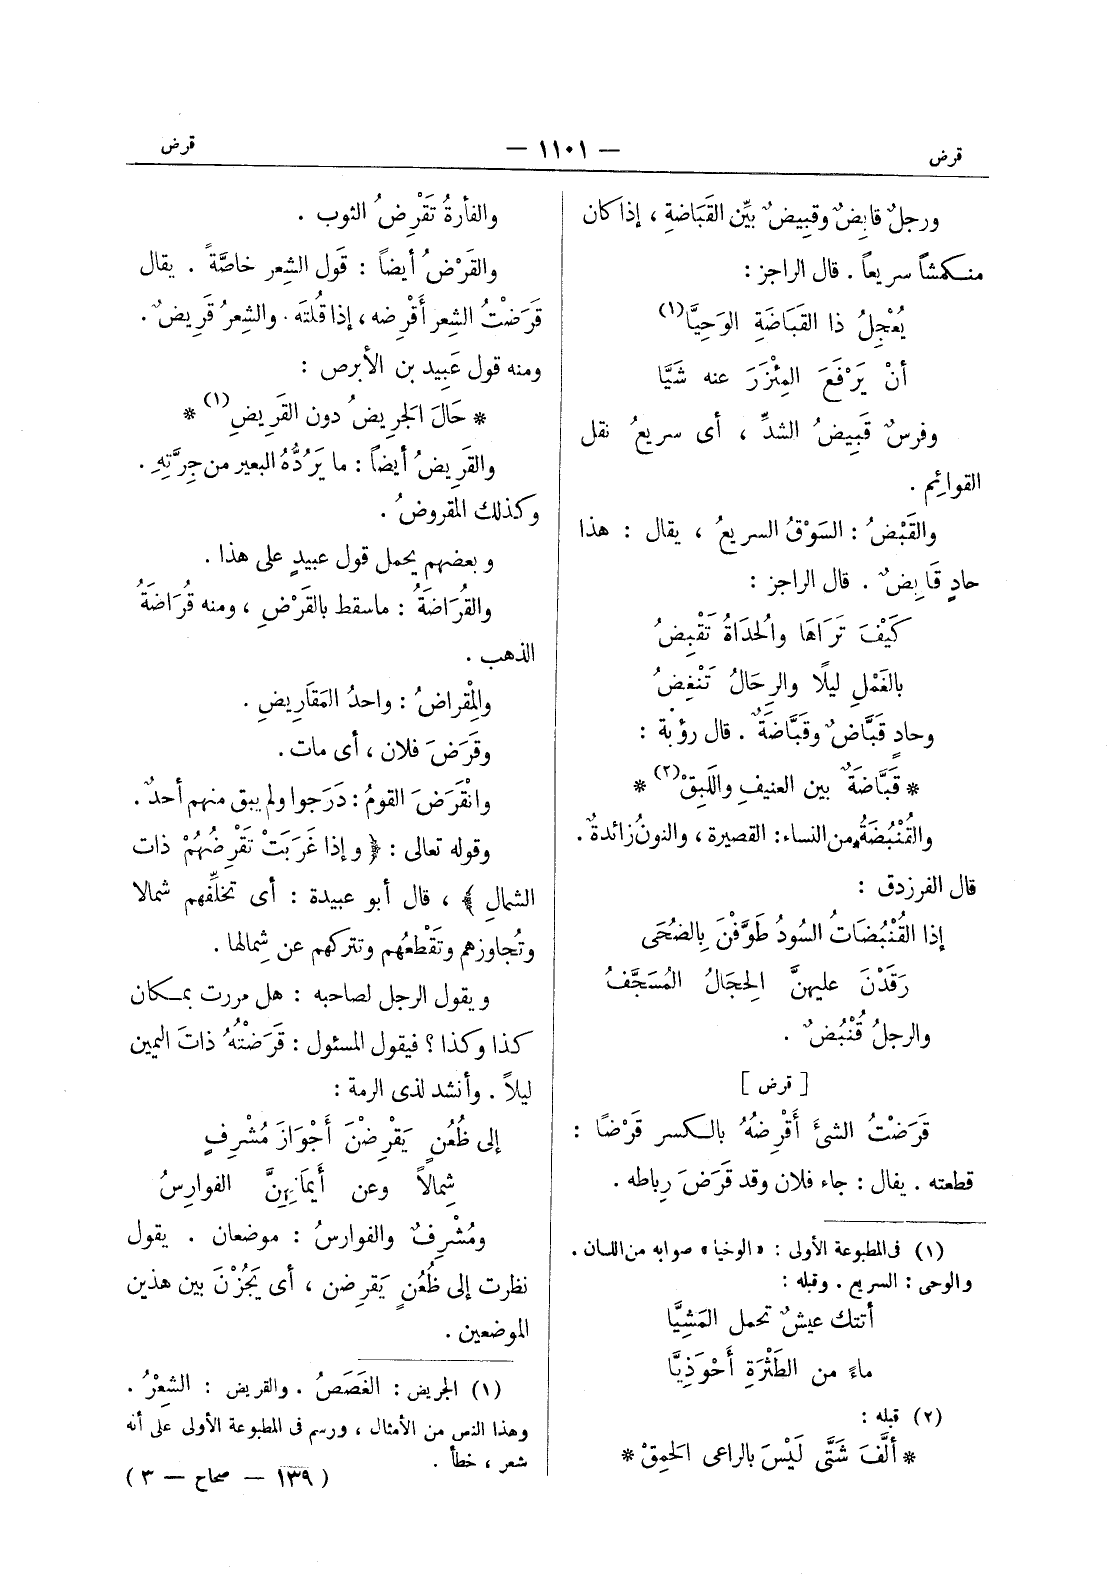 قرض
— ١١٠١ —
قرض
ورجلٌ قابِضٌ وقبِيضٌ بيِّن القَبَاضةِ ، إذا كان
منكمشاً سريعاً . قال الراجز :
يُعْجِلُ ذا القَبَاضَةِ الوَحِيَّا(١)
أنْ يَرْفَعَ المِئْزَرَ عنه شَيَّا
وفرسٌ قَبِيضُ الشدِّ ، أى سريعُ نقل
القوائِم .
والقَبْضُ : السَوْقُ السريعُ ، يقال : هذا
حادٍ قَابِضٌ . قال الراجز :
كَيْفَ تَرَاهَا والُحدَاةُ تَقْبِضُ
بالغَمْلِ ليلًا والرِحَالُ تَنْغِضُ
وحادٍ قَبَّاضٌ وقَبَّاضَةٌ . قال رؤبة :
* قَبَّاضَةٌ بين العنيفِ واللَبِقْ(٢) *
والقُنْبُضَةُ من النساء : القصيرة ، والنونُ زائدةٌ .
قال الفرزدق :
إذا القُنْبُضَاتُ السُودُ طَوَّفْنَ بِالضُحَى
رَقَدْنَ عليهنَّ الحِجَالُ المُسَجَّفُ
والرجلُ قُنْبُضٌ .
[ قرض ]
قَرَضْتُ الشئَ أَقْرِضهُ بالكسر قَرْضًا :
قطعته . يقال : جاء فلان وقد قَرَضَ رِباطه .
(١) فى المطبوعة الأولى : «الوخيا» صوابه من اللسان .
والوحى : السريع . وقبله :
أتتك عيسٌ تحمل المَشِيَّا
ماءً من الطَثْرَةِ أَحْوَذِيَّا
(٢) قبله :
* ألَّفَ شَتَّى لَيْسَ بالراعى الحَمِقْ *
والفأرةُ تَقْرِضُ الثوب .
والقَرْضُ أيضاً : قَول الشِعر خاصَّةً . يقال
قَرَضْتُ الشِعر أَقْرِضه ، إذا قُلتَه . والشِعرُ قَرِيضٌ .
ومنه قول عَبِيد بن الأبرص :
* حَالَ الجَرِيضُ دون القَرِيضِ(١) *
والقَرِيضُ أيضاً : ما يَرُدُّهُ البعير من جِرَّتِهِ .
وكذلك المقروضُ .
وبعضهم يحمل قول عبيدٍ على هذا .
والقُرَاضَةُ : ماسقط بالقَرْضِ ، ومنه قُرَاضَةُ
الذهب .
والمِقْراضُ : واحدُ المَقَارِيضِ .
وقَرَضَ فلان ، أى مات .
وانْقَرَضَ القومُ : دَرَجوا ولم يبق منهم أحدٌ .
وقوله تعالى : ﴿ وإذا غَرَبَتْ تَقْرِضُهُمْ ذات
الشمالِ ﴾ ، قال أبو عبيدة : أى تخلِّفهم شمالا
وتُجاوزهم وتَقْطَعُهم وتتركهم عن شِمالها .
ويقول الرجل لصاحبه : هل مررت بمكان
كذا وكذا ؟ فيقول المسئول : قَرَضْتُهُ ذاتَ اليمين
ليلاً . وأنشد لذى الرمة :
إلى ظُعُنٍ يَقْرِضْنَ أَجْوَازَ مُشْرِفٍ
شِمالاً وعن أَيْمَانِهِنَّ الفوارِسُ
ومُشْرِفٌ والفوارسُ : موضعان . يقول
نظرت إلى ظُعُنٍ يَقرِضن ، أى يَجُزْنَ بين هذين
الموضعين .
(١) الجريض : الغَصَصُ . والقريض : الشِعْرُ .
وهذا النس من الأمثال ، ورسم فى المطبوعة الأولى على أنه
شعر ، خطأ .
( ١٣٩ — صحاح — ٣ )